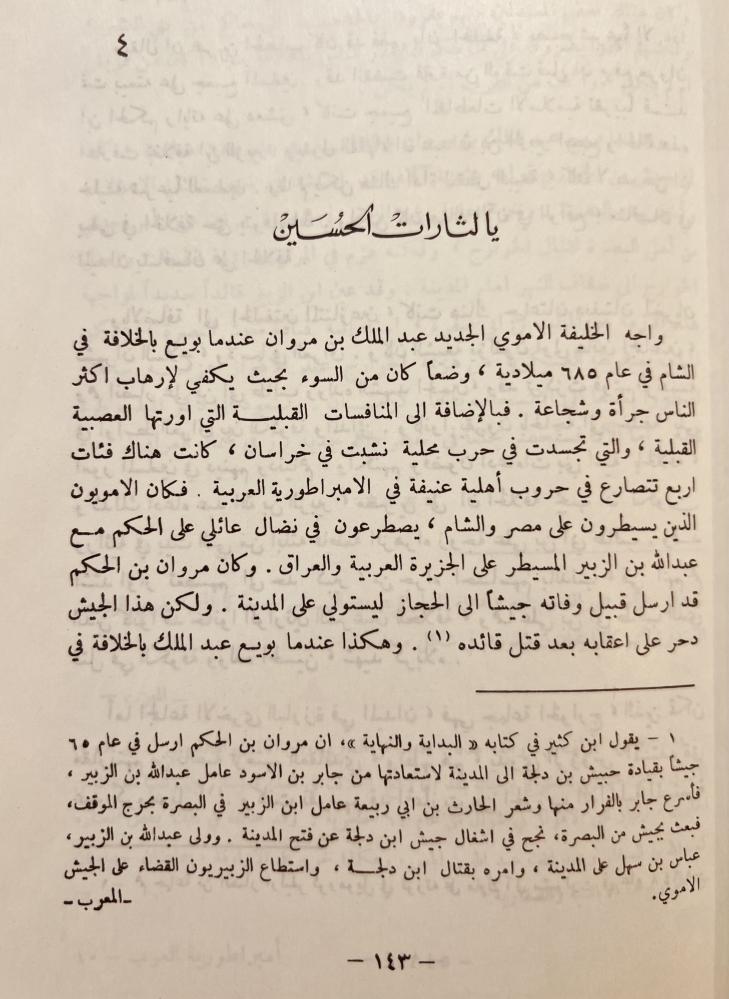 ٤
يالثارات الحسين
واجه الخليفة الاموي الجديد عبد الملك بن مروان عندما بويع بالخلافة في
الشام في عام ٦٨٥ ميلادية ، وضعاً كان من السوء بحيث يكفي لإرهاب اكثر
الناس جرأة وشجاعة . فبالإضافة الى المنافسات القبلية التي اورتها العصبية
القبلية ، والتي تجسدت في حرب محلية نشبت في خراسان ، كانت هناك فئات
اربع تتصارع في حروب أهلية عنيفة في الامبراطورية العربية . فكان الامويون
الذين يسيطرون على مصر والشام ، يصطرعون في نضال عائلي على الحكم مع
عبدالله بن الزبير المسيطر على الجزيرة العربية والعراق . وكان مروان بن الحكم
قد ارسل قبيل وفاته جيشاً الى الحجاز ليستولي على المدينة . ولكن هذا الجيش
دحر على اعقابه بعد قتل قائده (١) . وهكذا عندما بويع عبد الملك بالخلافة في
١ – يقول ابن كثير في كتابه « البداية والنهاية »، ان مروان بن الحكم ارسل في عام ٦٥
جيشاً بقيادة حبيش بن دلجة الى المدينة لاستعادتها من جابر بن الاسود عامل عبدالله بن الزبير ،
فأسرع جابر بالفرار منها وشعر الحارث بن ابي ربيعة عامل ابن الزبير في البصرة بحرج الموقف،
فبعث بجيش من البصرة، نجح في اشغال جيش ابن دلجة عن فتح المدينة . وولى عبدالله بن الزبير،
عباس بن سهل على المدينة ، وامره بقتال ابن دلجة ، واستطاع الزبيريون القضاء على الجيش
الاموي. –المعرب–
– ١٤٣ –